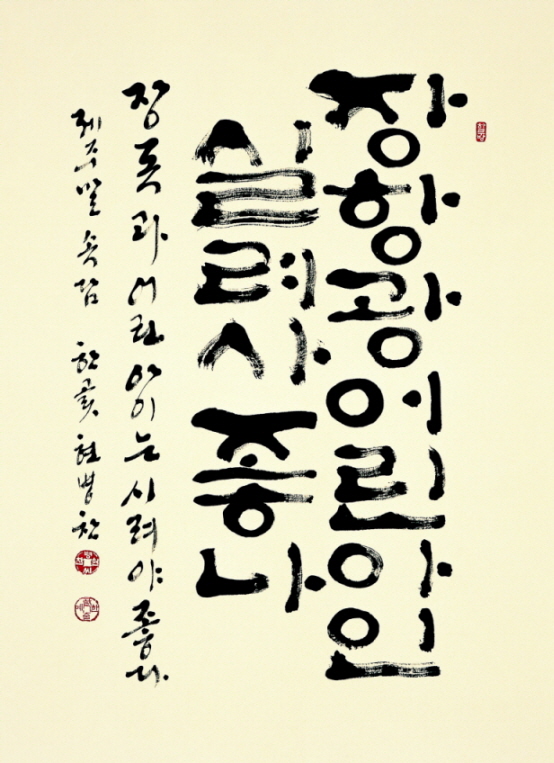 장항광어린아인
실려사 좋나
장독과 어린 아이는 시려야 좋다
제주말 속담 한곬 현병찬